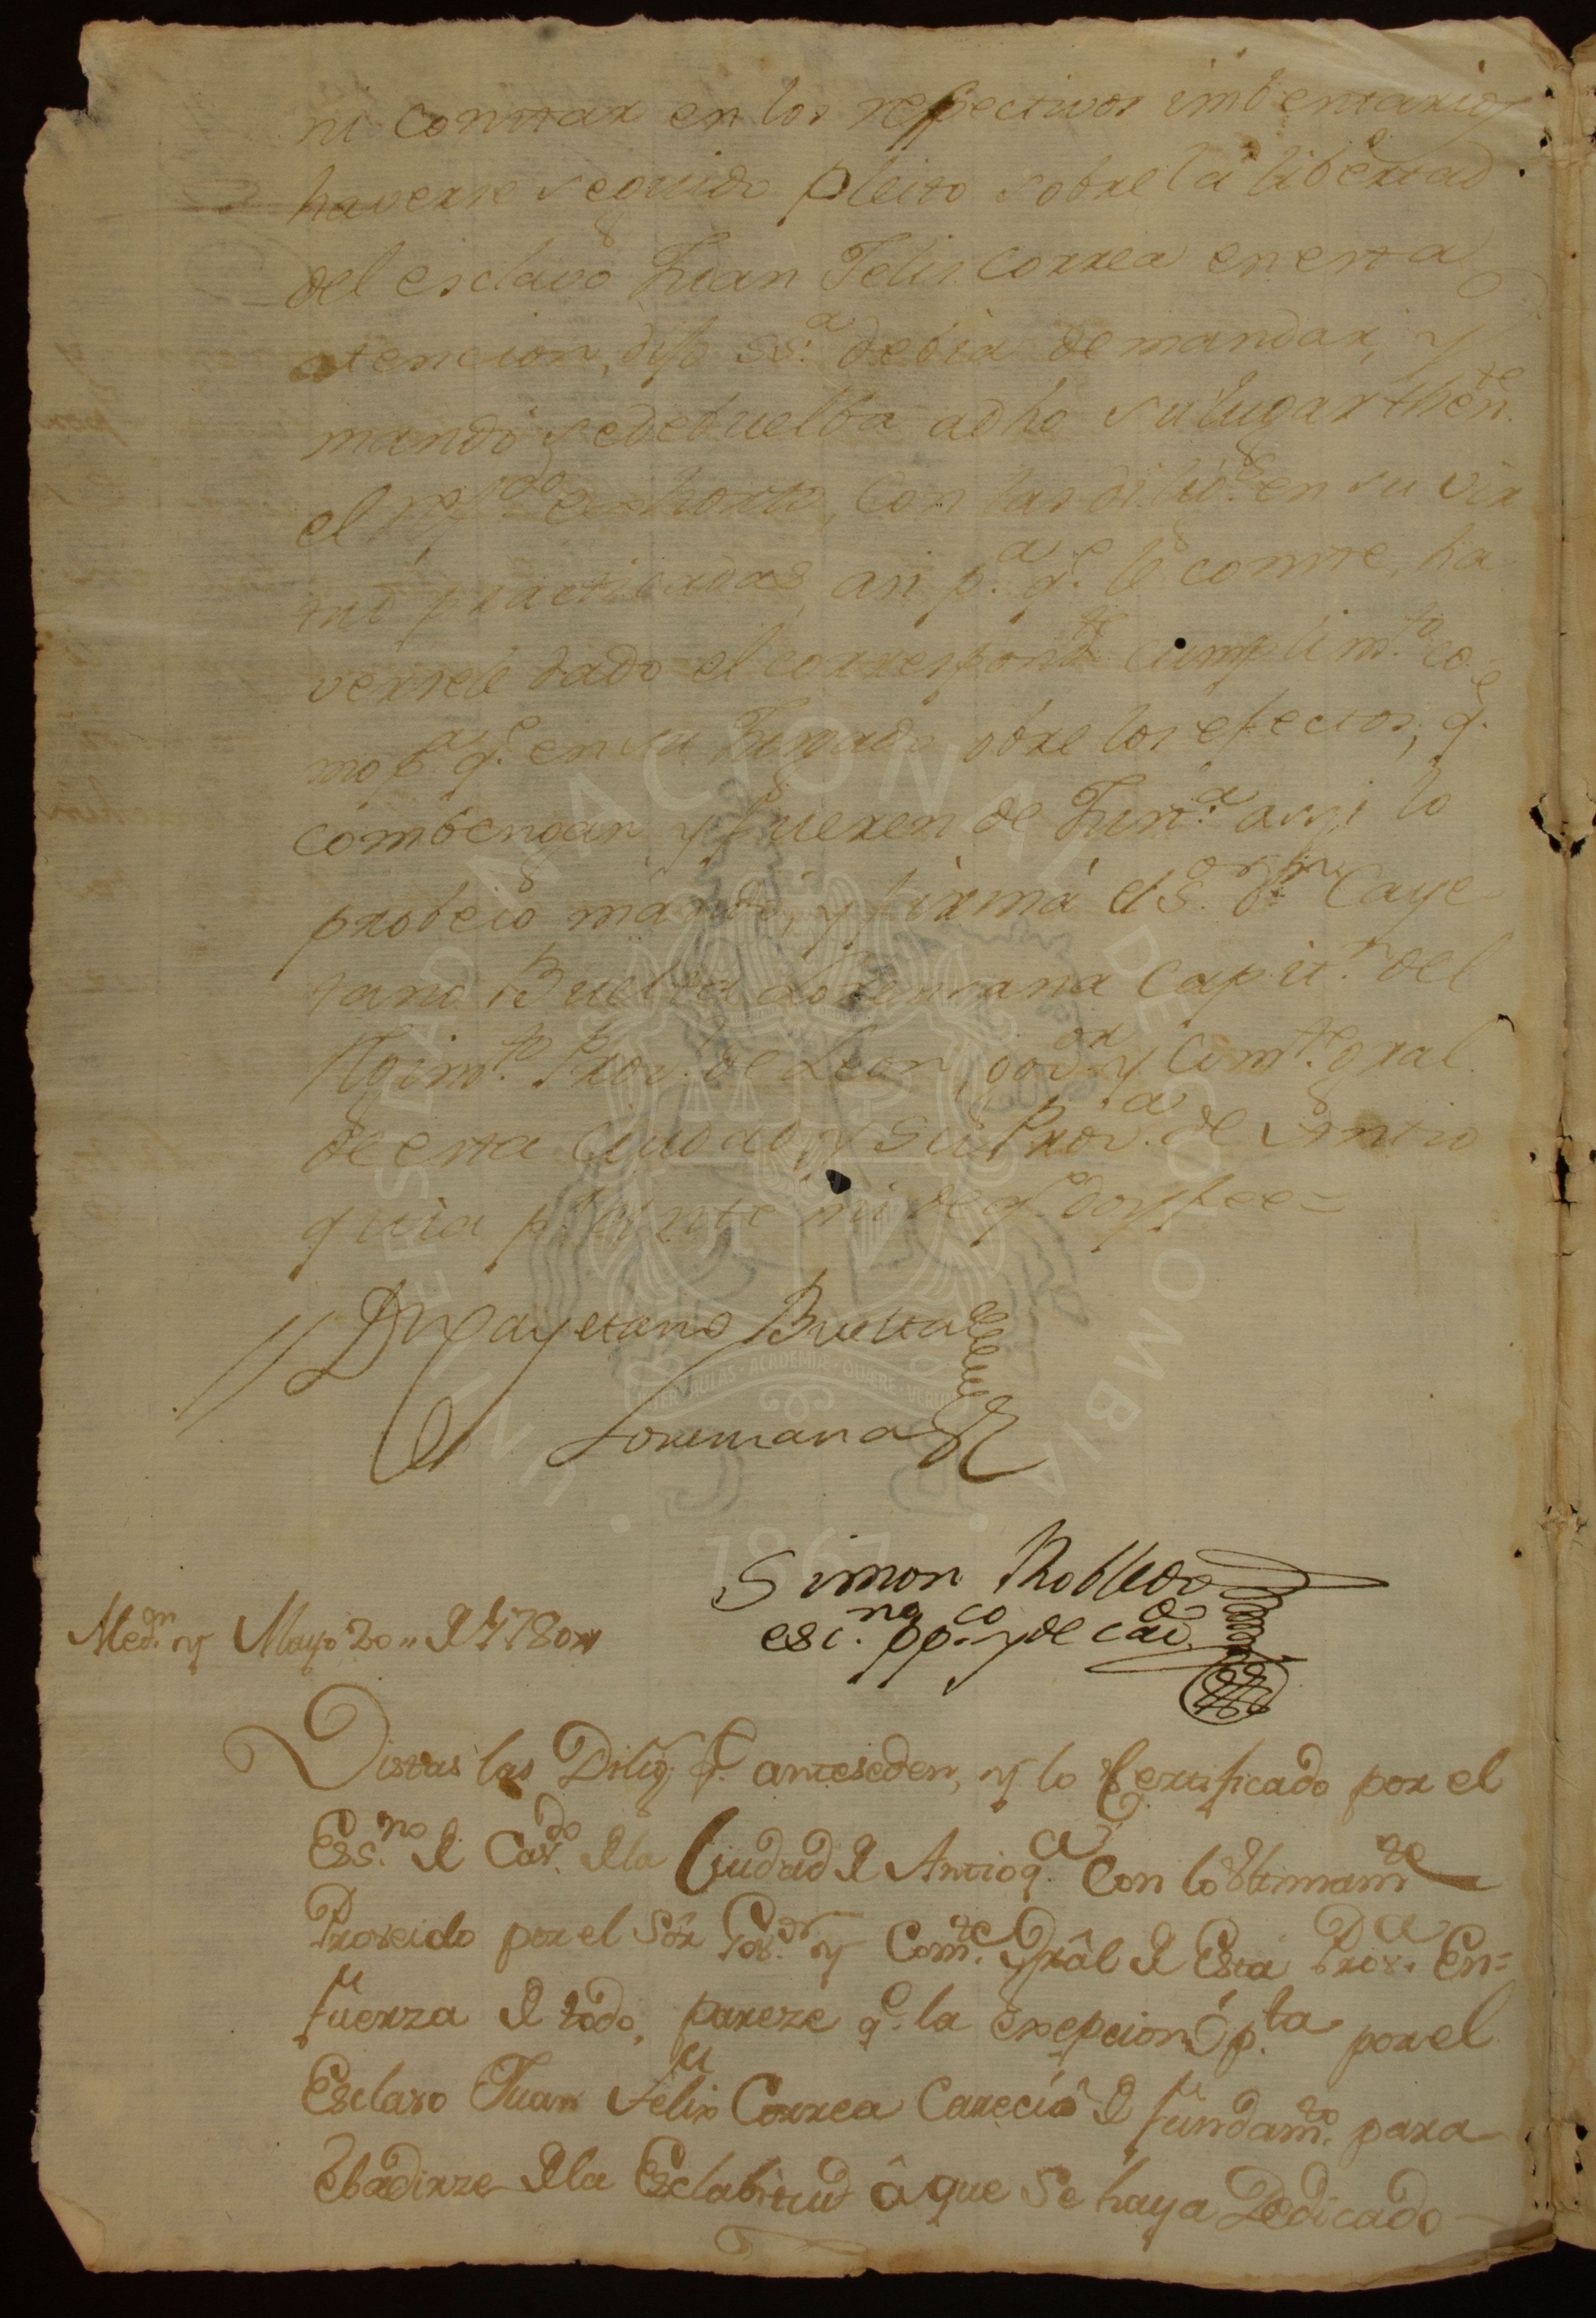 ni constar en los respectivos imbentarios
haverse seguido pleito sobre la libertad
del esclavo Juan Felis Correa en esta
atencion, dijo SSª. debia de mandar, y
mandó se debuelba adho su lugar thenᵗᵉ.
el refᵈᵒ. exhorto, con las diligˢ. en su vir
tud practicadas, asi pª. qᵉ. le conste, ha
versele dado el correspondᵗᵉ cumplimᵗᵒ. co
mo pª. qᵉ. en su Jusgado obre los efectos, qᵉ.
combengan y fueren de Justª. assi lo
probeió mandó, y firmá el Sᵒʳ. dⁿ. Caye
tano Buelta Lorensana Capitⁿ. del
Rgimᵗᵒ. Provˡ. de Leon, govᵒʳ y Comᵗᵉ. gral.
de esta Ciudad, y su Provª. de Antio
quia pʳ. ante mi de qᵉ. doy fee=
Dn Cayetano Buelta
Lorensana
Simon Robledo
escⁿᵒ. ppᶜᵒ. y de Cavᵈᵒ.
Medⁿ. y Mayo 20 " d 1780
Vistas las Diligˢ. q. anteseden, y lo Certificado por el
Essⁿᵒ. d Cavᵈᵒ. dla Ciudad d Antioqª. Con lo Vltimamᵗᵉ
Proveido por el Sor Govᵒʳ. y Comᵗᵉ. Gral d Esta Provª. En=
fuerza d todo, pareze qᵉ. la Exepcion opᵗᵃ por el
Esclavo Juan Felix Correa Carecio d fundamᵗᵒ. para
Ebadirze dla Esclabitud â que Se haya Dedicado
UNIVERSIDAD NACIONAL DE COLOMBIA
INTER · AULAS · ACADEMIÆ · QUÆRE · VERUM
1867